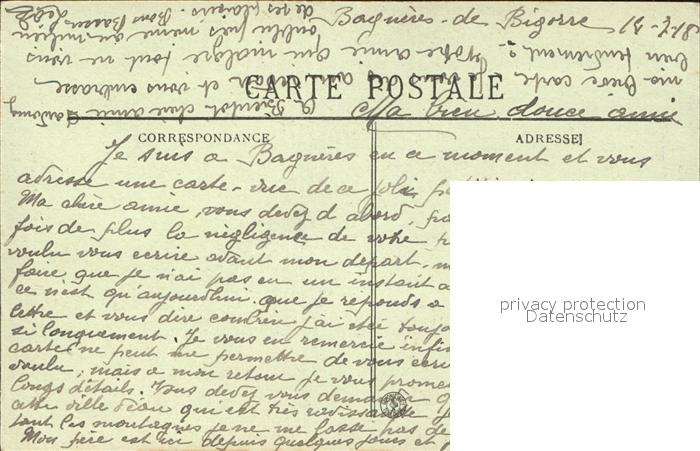 Bagnères-de Bigorre 19-7-18
CARTE POSTALE
Ma bien douce amie
CORRESPONDANCE
ADRESSE
Je suis a Bagnères en ce moment et vous
adresse une carte-vue de ce joli
Ma chère amie, vous devez d'abord,
fois de plus la négligence de votre
voulu vous ecrire avant mon départ,
faire que je n'ai pas eu un instant a
ce n'est qu'aujourd'hui que je reponds a
lettre et vous dire combien j'ai été
si longuement. Je vous en remercie
carte ne peut me permettre de vous
voulu, mais a mon retour je vous
longs détails. Vous devez vous
cette ville d'eau qui est très ravissante
tant les montagnes je ne me lasse pas de
Mon père est ici depuis quelques jours et
A Bientôt chère amie
ma brève carte et vous embrasse
bien tendrement.
Votre amie qui malgré tout ne vous
oublie pas, même au milieu
de ses plaisirs. Bons Baisers
privacy protection
Datenschutz